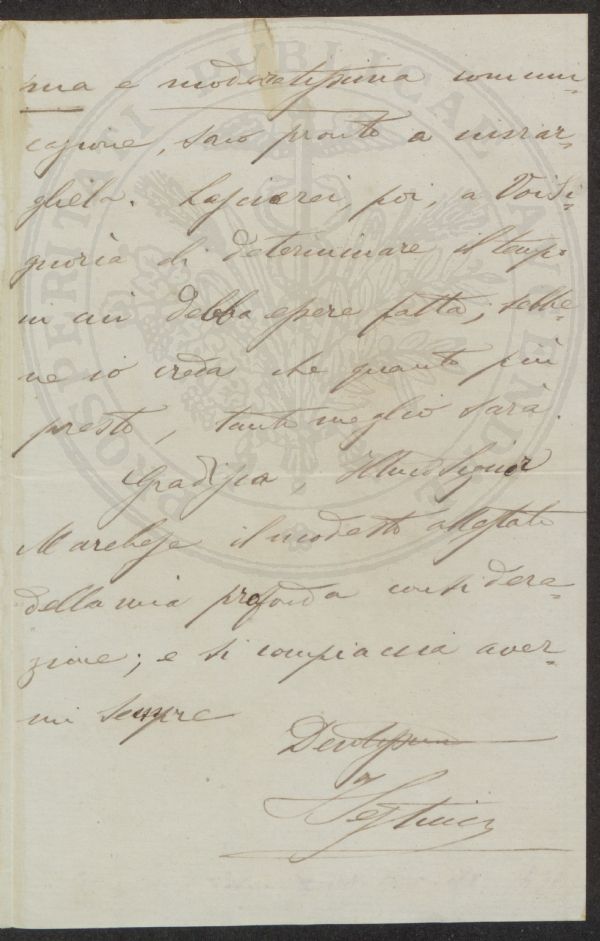 ma e moderatissima comuni-
cazione, sarò pronto a inviar-
gliela. Lascierei, poi, a Vossi-
gnoria di determinare il tempo
in cui debba essere fatta; sebbe-
ne io creda che quanto più
presto, tanto meglio sarà.
Gradisca, Illmo Signor
Marchese il modesto attestato
della mia profonda considera-
zione; e si compiaccia aver-
mi sempre
Devotissimo
PROSPERITATI PVBLICAE AVGENDAE